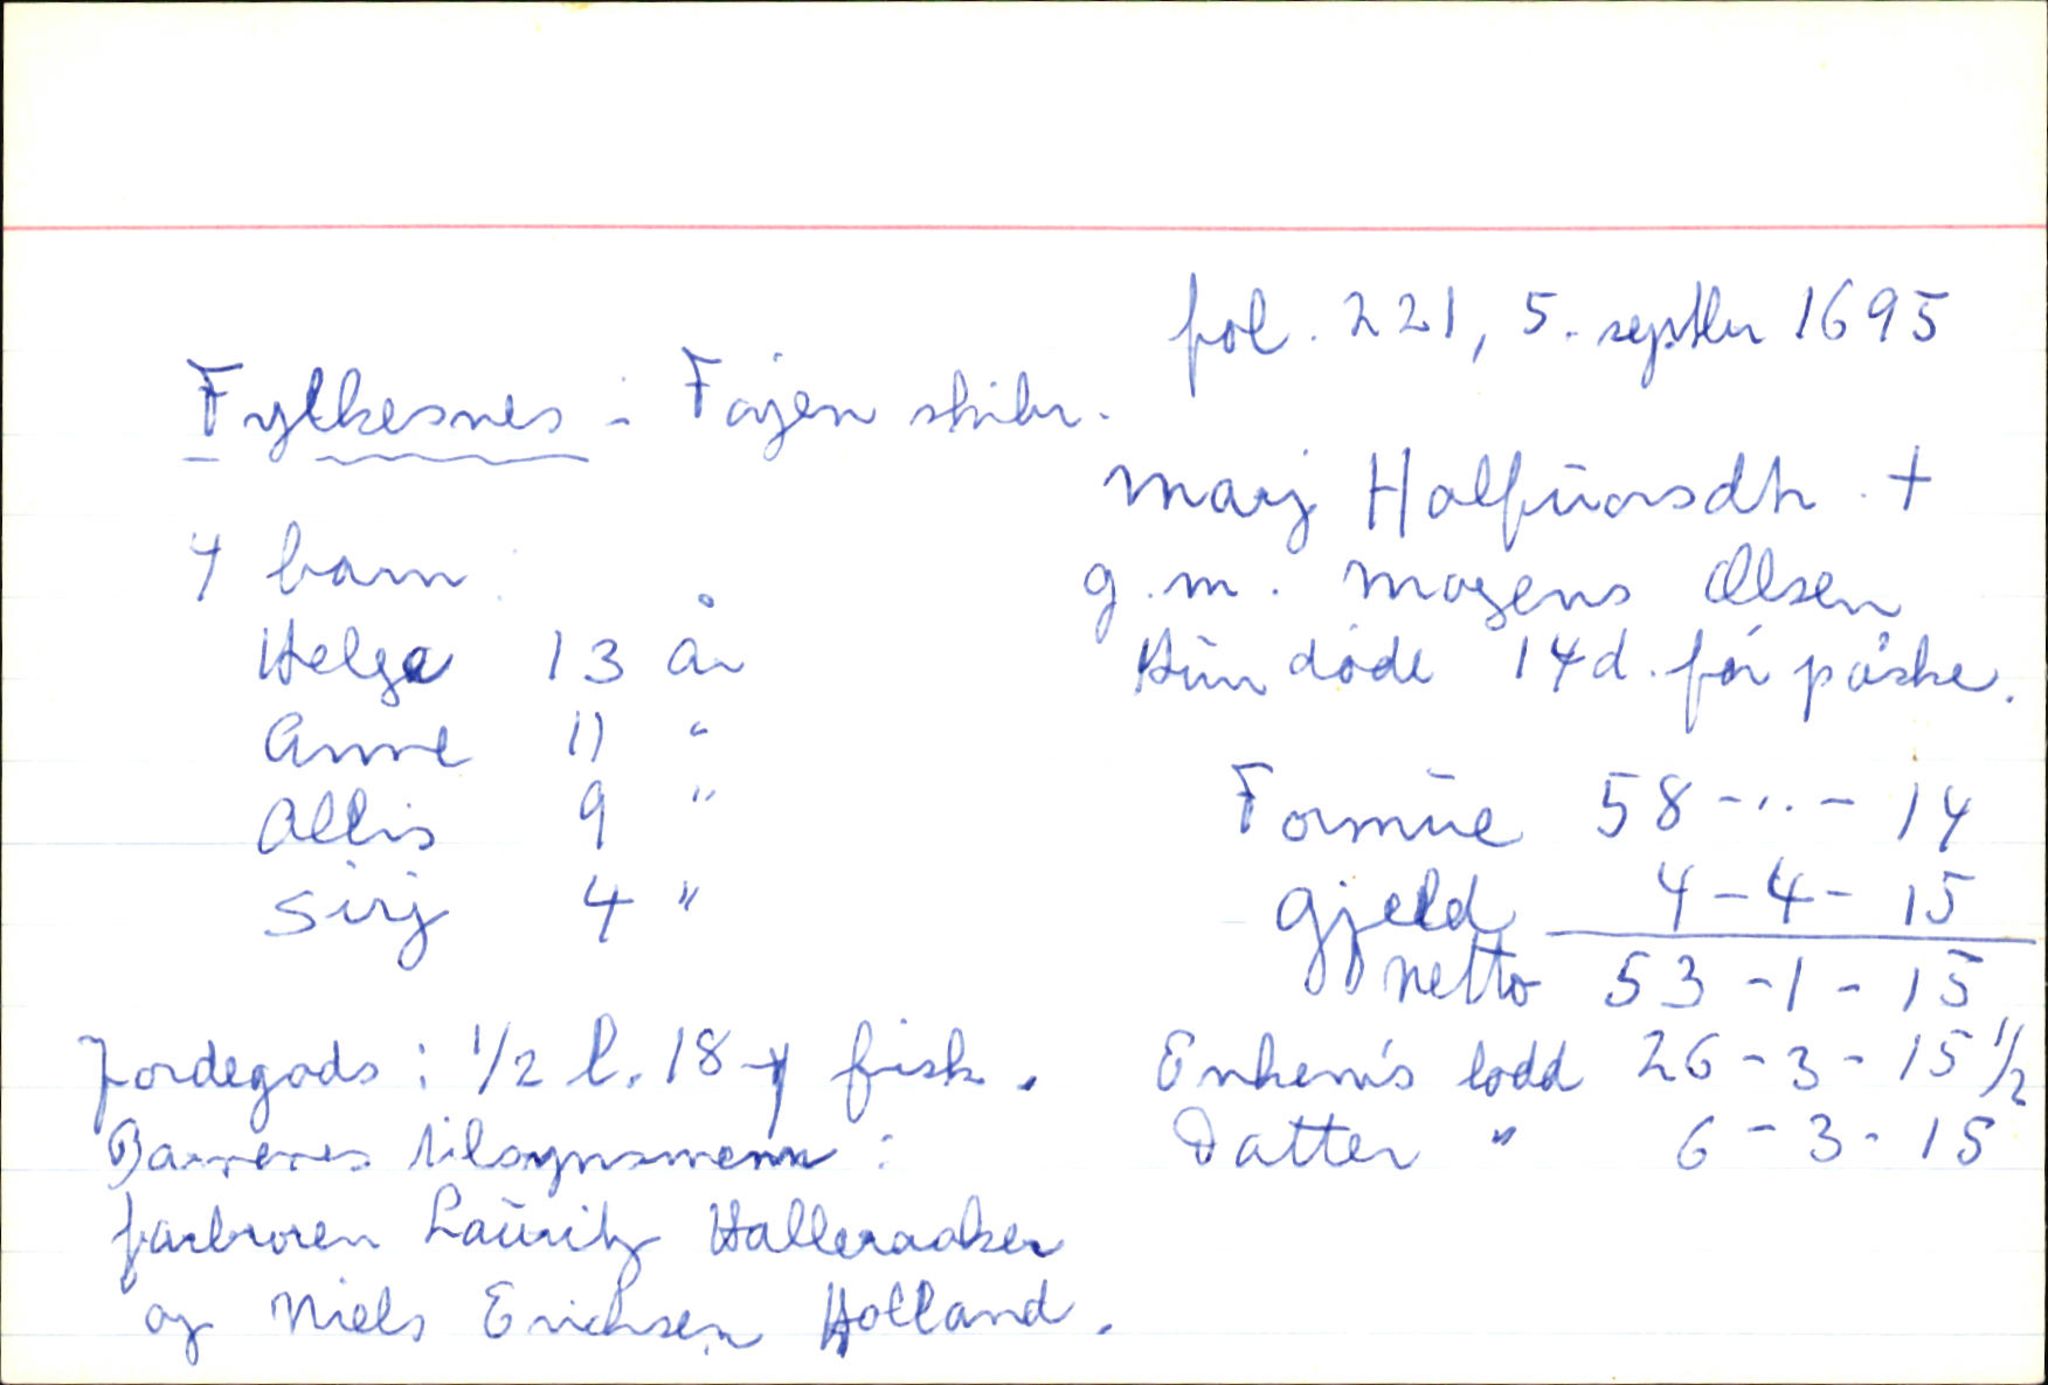 fol. 221, 5. septbr 1695
Fylkesnes - Føyen skibr.
Marj Halfuorsdtr. +
g. m. Mogens Olsen
Hun døde 14 d. før påske.
4 barn
Helge 13 år
Anne 11 "
Allis 9 "
Sirj 4 "
Formue 58 - .. - 14
Gjeld 4 - 4 - 15
Netto 53 - 1 - 15
Enkem's lodd 26 - 3 - 15 1/2
Datter " 6 - 3 - 15
Jordegods : 1/2 l. 18 fisk.
Barnenes tilsynsmenn :
farbroren Lauritz Halleraaker
og Niels Erichsen Holland.